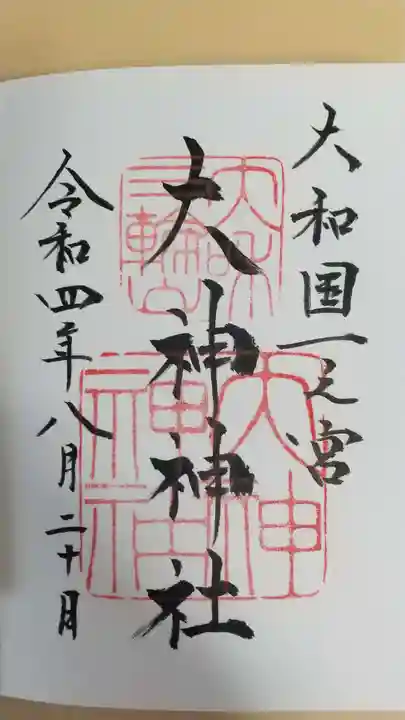 大和国一之宮
大神神社
令和四年八月二十日
大神神社